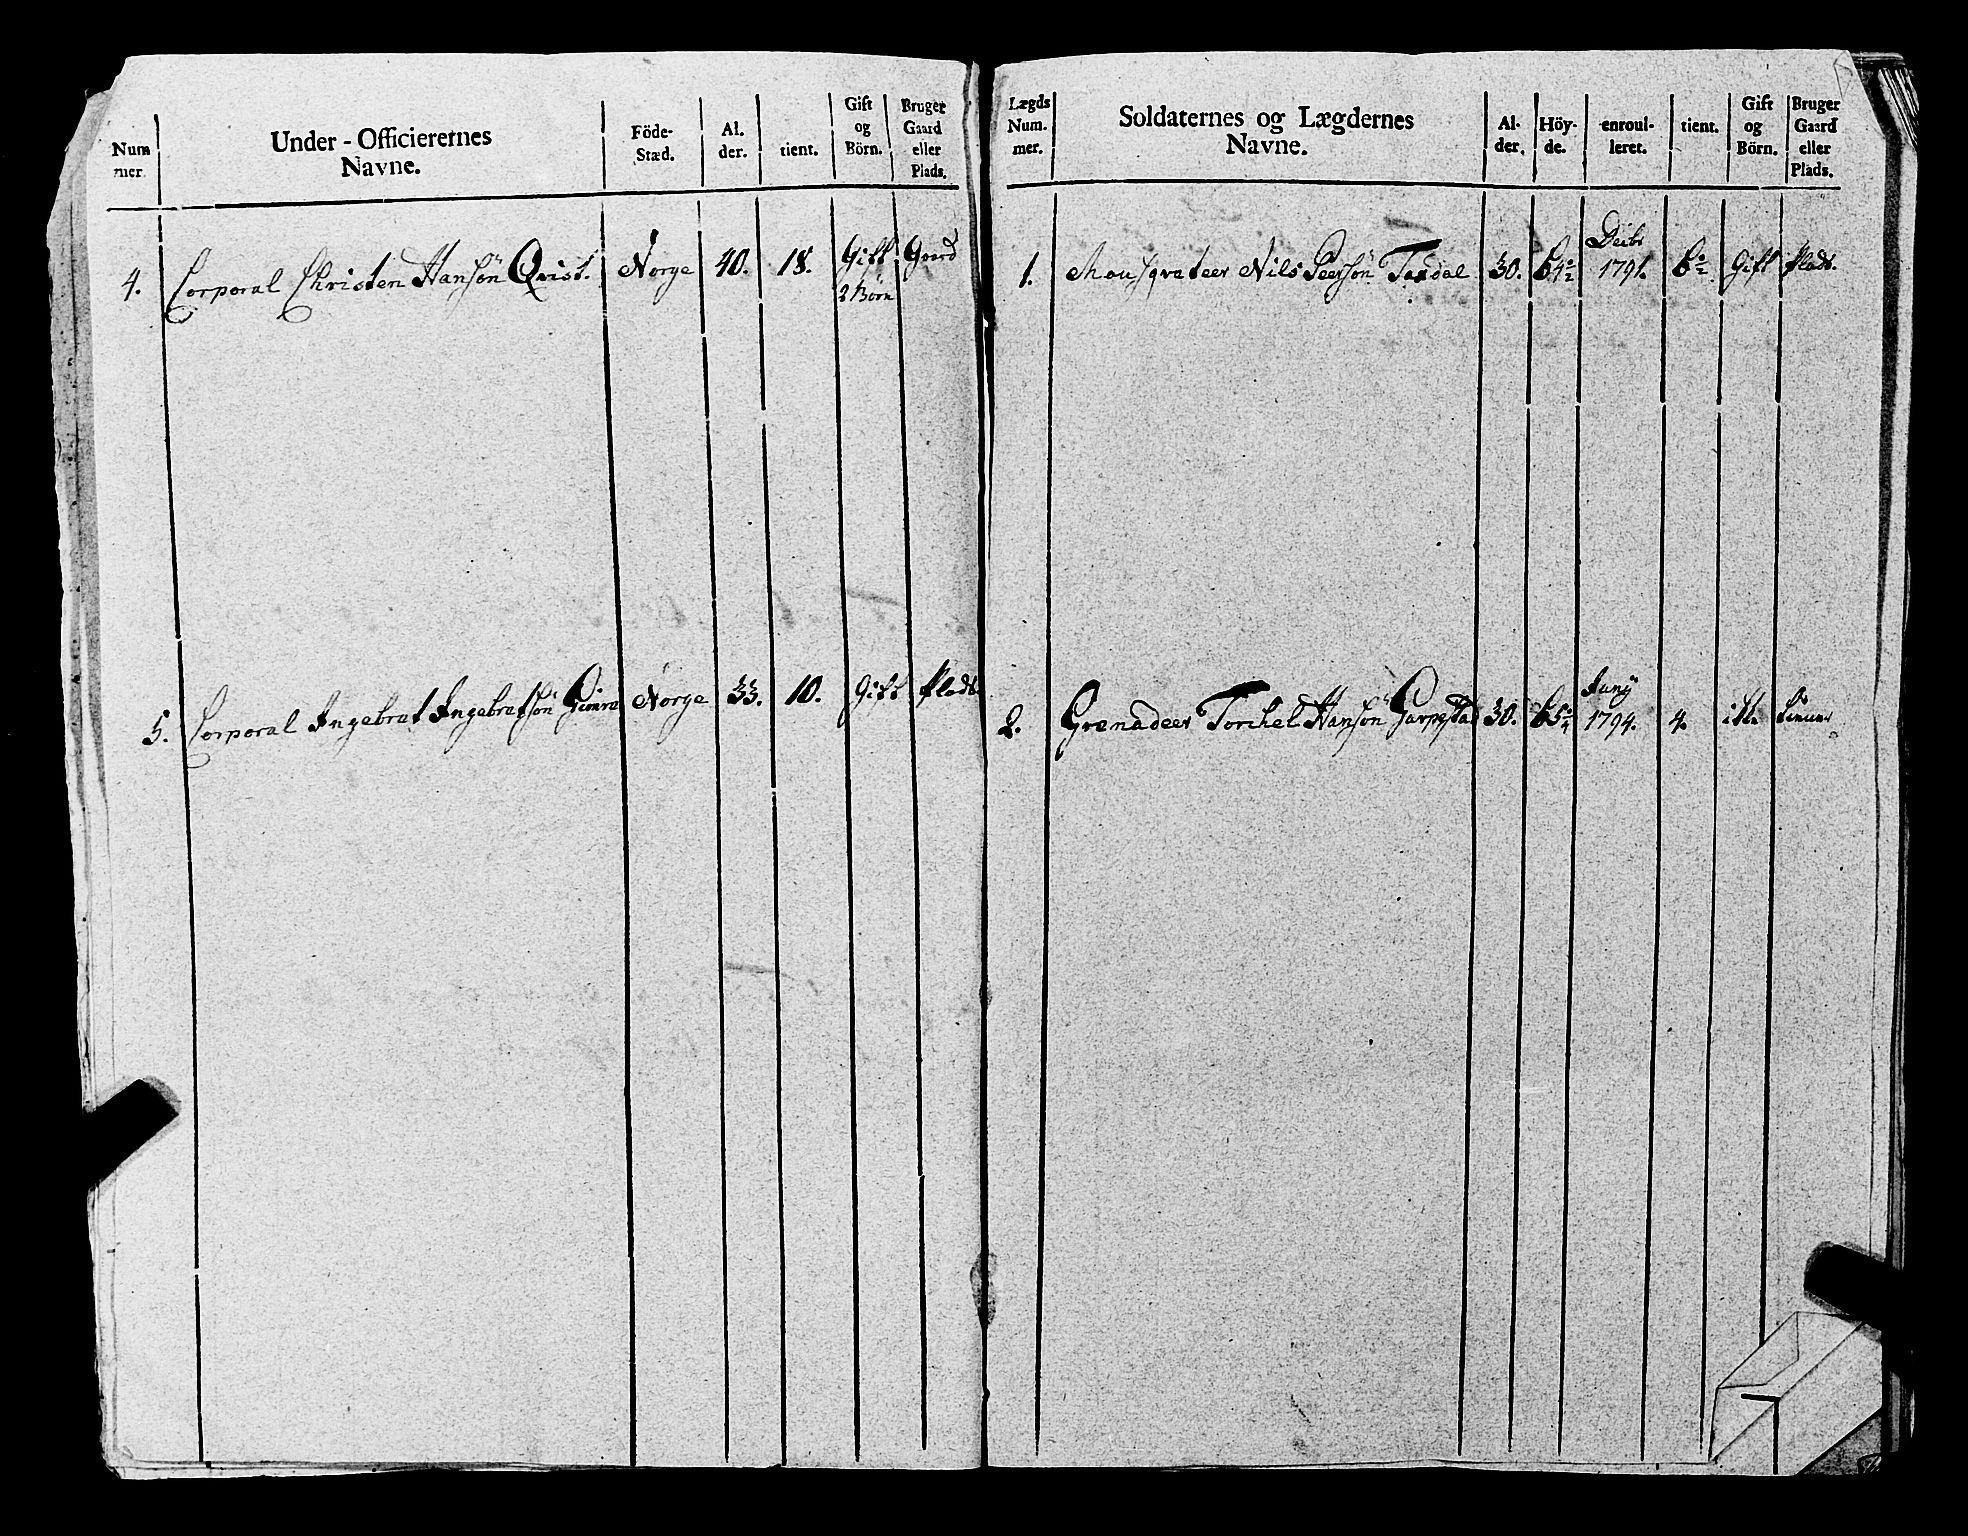 Num mer.
Under-Officierernes Navne.
Föde-Stæd.
Al. der.
tient.
Gift og Börn.
Bruger Gaard eller Plads.
4. Corporal Christen Hansön Qvist. Norge 40. 18. Gift 2 Börn Gaard
5. Corporal Ingebrat Ingebratsön Norge 33. 10. Gift Plads
Lægds Num. mer.
Soldaternes og Lægdernes Navne.
Al- der.
Höy- de.
enroul- leret.
tient.
Gift og Börn.
Bruger Gaard eller Plads.
1. Mousqvateer Nils Peersön 30. Decbr 1791. Gift Plads.
2. Grenadeer Torchel Hansön Garpestad 30. Juny 1794. 4. ikke tiener